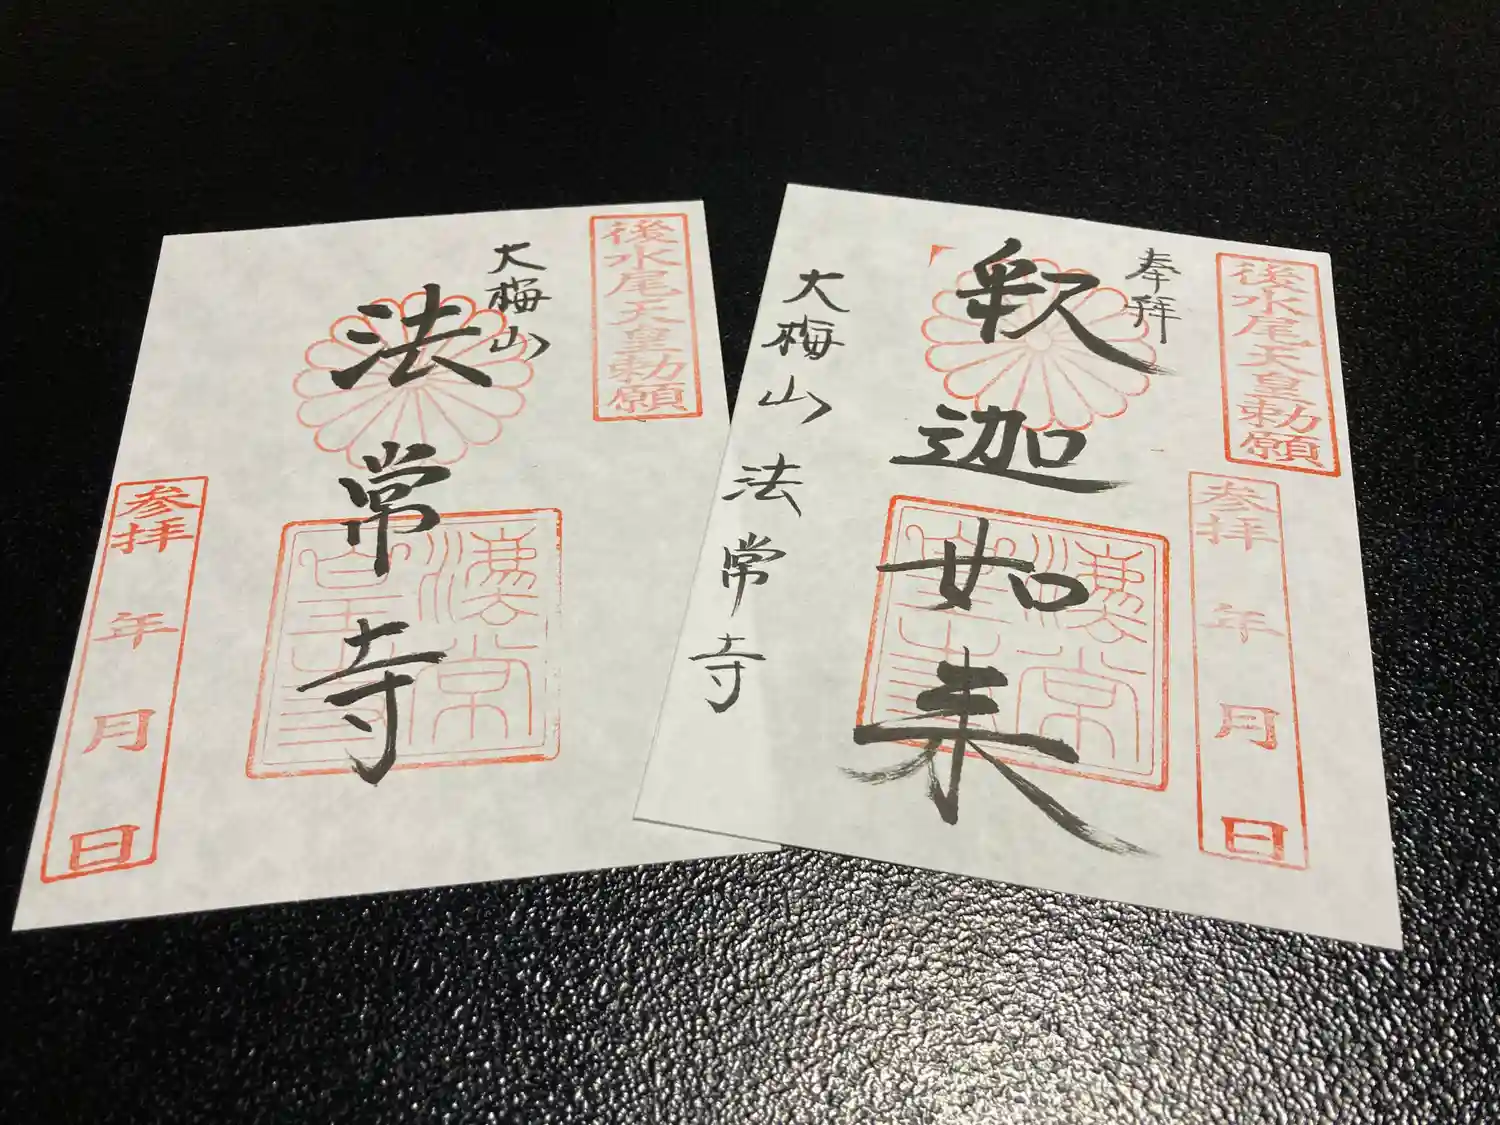 後水尾天皇勅願
大梅山
法常寺
参拝 年 月 日
後水尾天皇勅願
参拝 年 月 日
奉拝
釈迦如来
大梅山 法常寺